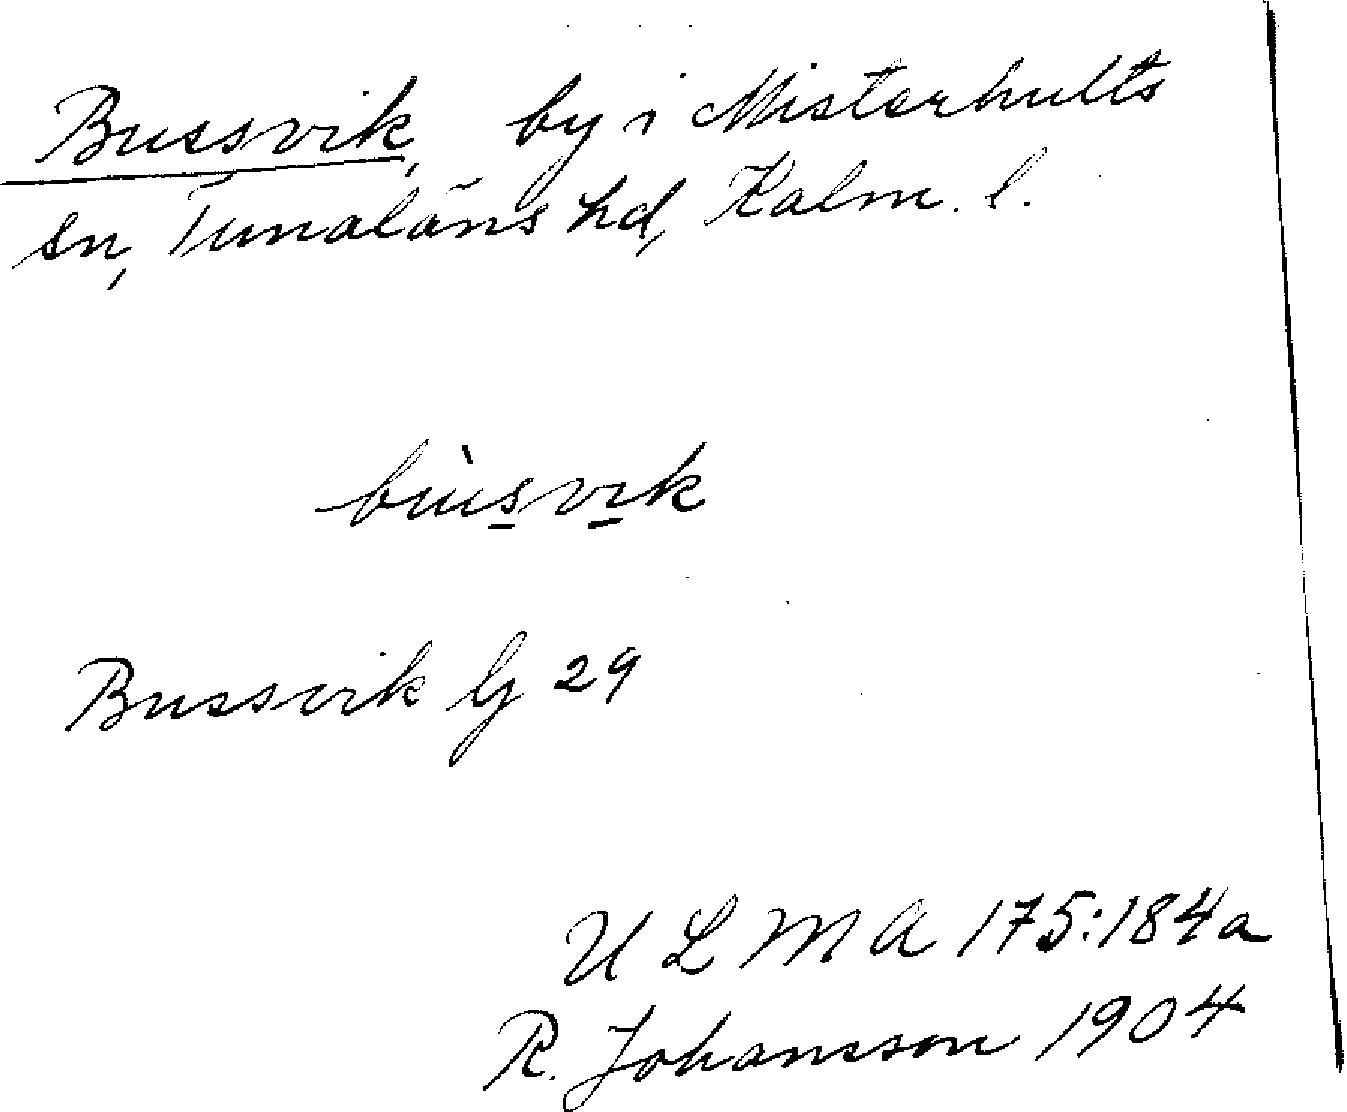 Bussvik, by i Misterhults
sn, Tunaläns hd, Kalm. l.
bùsvik
Bussvik G 29
U L M A 175:184a
R. Johansson 1904